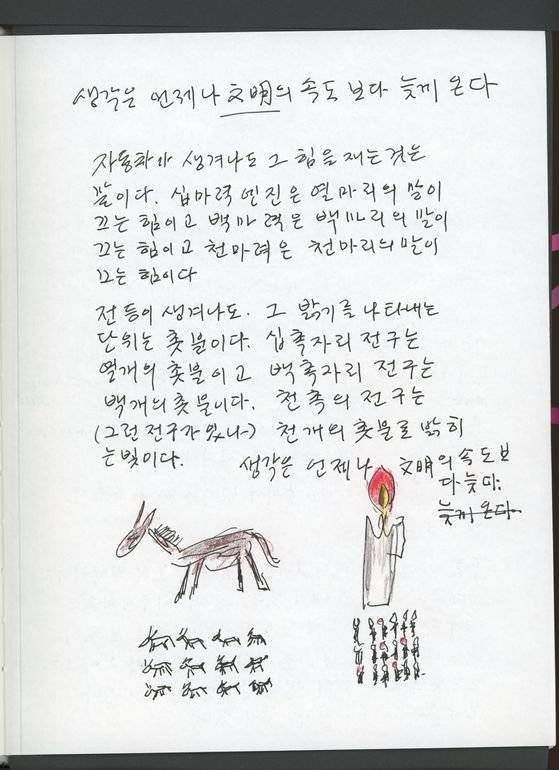 생각은 언제나 文明의 속도 보다 늦게 온다
자동차가 생겨나도 그 힘을 재는 것은
말이다. 십마력 엔진은 열마리의 말이
끄는 힘이고 백마력은 백마리의 말이
끄는 힘이고 천마력은 천마리의 말이
끄는 힘이다
전등이 생겨나도. 그 밝기를 나타내는
단위는 촛불이다. 십촉자리 전구는
열개의 촛불이고 백촉자리 전구는
백개의 촛불이다. 천촉의 전구는
(그런 전구가 있나~) 천개의 촛불로 밝히
는 빛이다. 생각은 언제나 文明의 속도보
다 늦다.
늦게 온다.